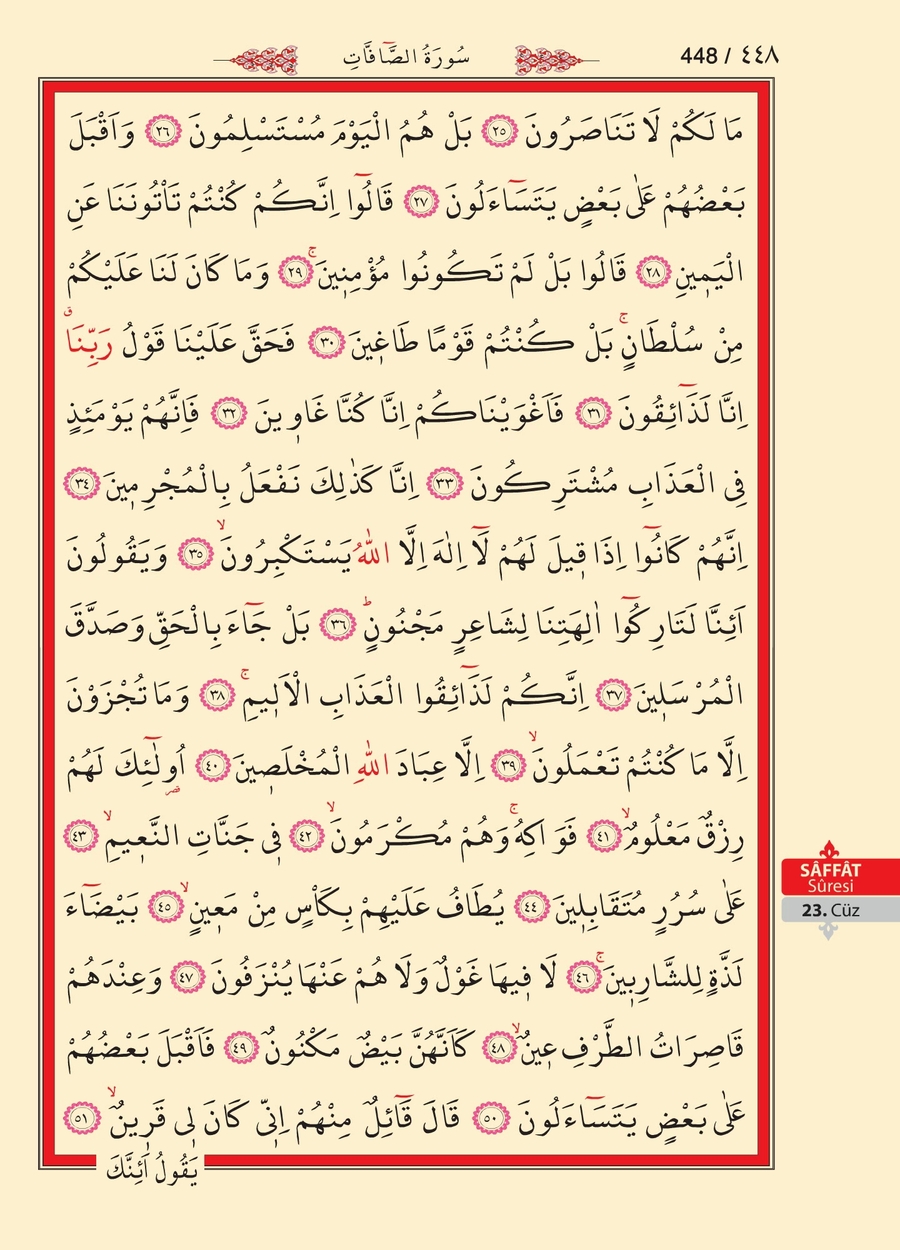 448 / ٤٤٨
سُورَةُ الصَّٓافَّاتِ
مَا لَكُمْ لَا تَنَاصَرُونَ ﴿٢٥﴾ بَلْ هُمُ الْيَوْمَ مُسْتَسْلِمُونَ ﴿٢٦﴾ وَاَقْبَلَ
بَعْضُهُمْ عَلٰى بَعْضٍ يَتَسَٓاءَلُونَ ﴿٢٧﴾ قَالُٓوا اِنَّكُمْ كُنْتُمْ تَأْتُونَنَا عَنِ
الْيَم۪ينِ ﴿٢٨﴾ قَالُوا بَلْ لَمْ تَكُونُوا مُؤْمِن۪ينَۚ ﴿٢٩﴾ وَمَا كَانَ لَنَا عَلَيْكُمْ
مِنْ سُلْطَانٍۚ بَلْ كُنْتُمْ قَوْمًا طَاغ۪ينَ ﴿٣٠﴾ فَحَقَّ عَلَيْنَا قَوْلُ رَبِّنَاۗ
اِنَّا لَذَٓائِقُونَ ﴿٣١﴾ فَاَغْوَيْنَاكُمْ اِنَّا كُنَّا غَاو۪ينَ ﴿٣٢﴾ فَاِنَّهُمْ يَوْمَئِذٍ
فِى الْعَذَابِ مُشْتَرِكُونَ ﴿٣٣﴾ اِنَّا كَذٰلِكَ نَفْعَلُ بِالْمُجْرِم۪ينَ ﴿٣٤﴾
اِنَّهُمْ كَانُٓوا اِذَا ق۪يلَ لَهُمْ لَٓا اِلٰهَ اِلَّا اللّٰهُ يَسْتَكْبِرُونَۙ ﴿٣٥﴾ وَيَقُولُونَ
اَئِنَّا لَتَارِكُٓوا اٰلِهَتِنَا لِشَاعِرٍ مَجْنُونٍۜ ﴿٣٦﴾ بَلْ جَٓاءَ بِالْحَقِّ وَصَدَّقَ
الْمُرْسَل۪ينَ ﴿٣٧﴾ اِنَّكُمْ لَذَٓائِقُوا الْعَذَابِ الْاَل۪يمِۚ ﴿٣٨﴾ وَمَا تُجْزَوْنَ
اِلَّا مَا كُنْتُمْ تَعْمَلُونَۙ ﴿٣٩﴾ اِلَّا عِبَادَ اللّٰهِ الْمُخْلَص۪ينَ ﴿٤٠﴾ اُو۬لٰٓئِكَ لَهُمْ
رِزْقٌ مَعْلُومٌۙ ﴿٤١﴾ فَوَاكِهُۚ وَهُمْ مُكْرَمُونَۙ ﴿٤٢﴾ ف۪ى جَنَّاتِ النَّع۪يمِۙ ﴿٤٣﴾
عَلٰى سُرُرٍ مُتَقَابِل۪ينَ ﴿٤٤﴾ يُطَافُ عَلَيْهِمْ بِكَأْسٍ مِنْ مَع۪ينٍۙ ﴿٤٥﴾ بَيْضَٓاءَ
لَذَّةٍ لِلشَّارِب۪ينَۚ ﴿٤٦﴾ لَا ف۪يهَا غَوْلٌ وَلَا هُمْ عَنْهَا يُنْزَفُونَ ﴿٤٧﴾ وَعِنْدَهُمْ
قَاصِرَاتُ الطَّرْفِ ع۪ينٌۙ ﴿٤٨﴾ كَاَنَّهُنَّ بَيْضٌ مَكْنُونٌ ﴿٤٩﴾ فَاَقْبَلَ بَعْضُهُمْ
عَلٰى بَعْضٍ يَتَسَٓاءَلُونَ ﴿٥٠﴾ قَالَ قَٓائِلٌ مِنْهُمْ اِنّ۪ى كَانَ ل۪ى قَر۪ينٌۙ ﴿٥١﴾
يَقُولُ اَئِنَّكَ
SÂFFÂT
Sûresi
23. Cüz